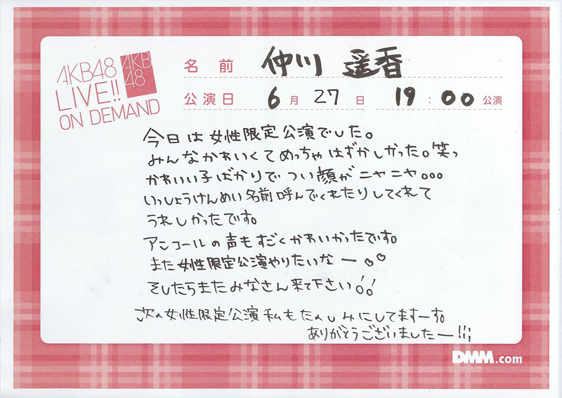 AKB48
LIVE!!
ON DEMAND
AKB
48
名前 仲川 遥香
公演日 6月27日 19:00公演
今日は女性限定公演でした。
みんなかわいくてめっちゃはずかしかった。笑っ
かわいい子ばかりでつい顔がニヤニヤ。。。
いっしょうけんめい名前呼んでくれたりしてくれて
うれしかったです。
アンコールの声もすごくかわいかったです。
また女性限定公演やりたいなー。。
そしたらまたみなさん来て下さい!!
次の女性限定公演私もたのしみにしてますーす。
ありがとうございましたー!!!
DMM.com